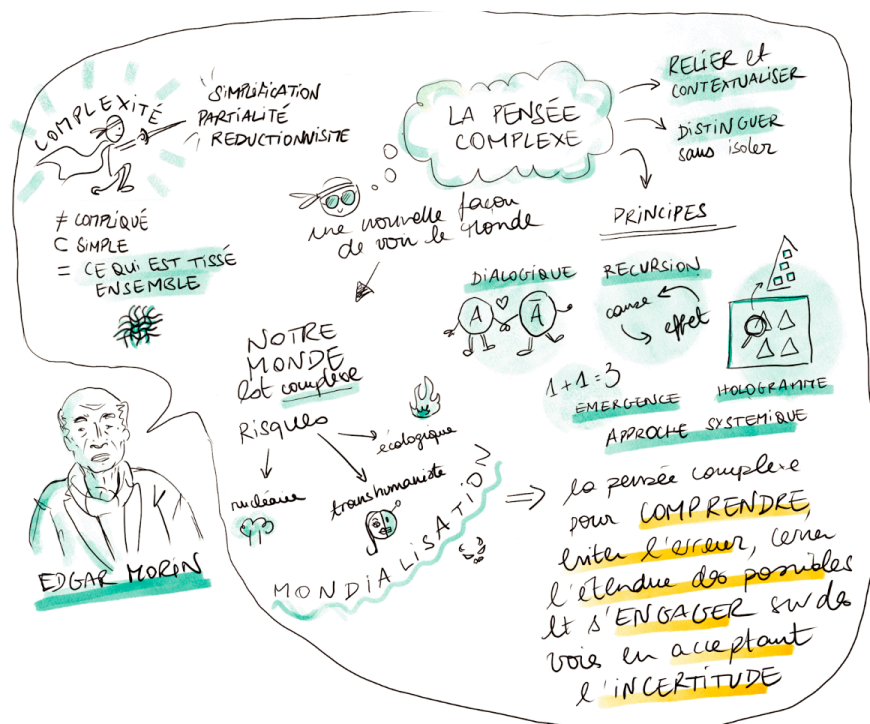 COMPLEXITÉ
SIMPLIFICATION
PARTIALITÉ
REDUCTIONNISME
≠ COMPLIQUÉ
C SIMPLE
= CE QUI EST TISSÉ
ENSEMBLE
LA PENSÉE
COMPLEXE
RELIER et
CONTEXTUALISER
DISTINGUER
sans isoler
une nouvelle façon
de voir le Monde
PRINCIPES
DIALOGIQUE
A
Ā
RECURSION
cause
effet
HOLOGRAMME
1+1=3
EMERGENCE
APPROCHE SYSTEMIQUE
NOTRE
MONDE
Est complexe
Risques
écologique
nucléaire
transhumaniste
MONDIALISATION
EDGAR MORIN
⇒ la pensée complexe
pour COMPRENDRE,
éviter l'erreur, cerner
l'étendue des possibles
et s'ENGAGER sur des
voies en acceptant
l'INCERTITUDE